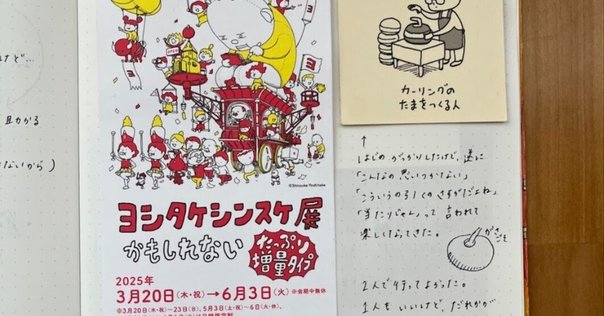 けど…
助かる
ないから)
©Shinsuke Yoshitake
ヨシタケシンスケ展
かもしれない
たっぷり
増量タイプ
2025年
3月20日(木・祝)→6月3日(火)※会期中無休
※3月20日(木・祝)～23日(日)、5月3日(土・祝)～6日(火・休)、
カーリングの
たまをつくる人
↑
はじめ がっかりしたけど、逆に
「こんなの思いつかない」
「こういうの引くのさすがだよね」
「当たりじゃん」って 言われて
楽しくなってきた。
がさごそ
1人で行ってよかった。
1人もいいけど、だれかが